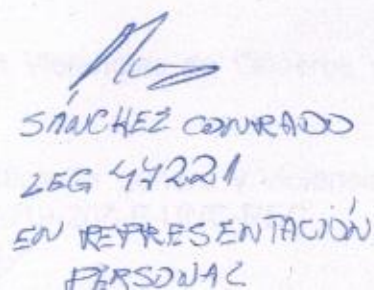 SÁNCHEZ CONRADO
LEG 47221
EN REPRESENTACIÓN
PERSONAL